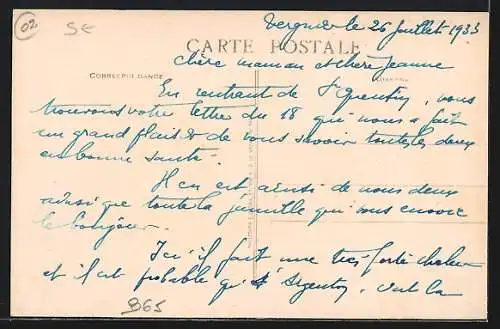 02
SE
Vergnier le 26 Juillet 1933
CARTE POSTALE
chère maman et chère Jeanne
CORRESPONDANCE
En rentrant de St Quentin, nous
trouvons votre lettre du 18 qui nous a fait
un grand plaisir de vous savoir toutes les deux
en bonne santé.
Il en est ainsi de nous deux
ainsi que toute la famille qui vous envoie
le bonjour.
Ici il fait une très forte chaleur
et il est probable qu'à Argentin, vert la
865